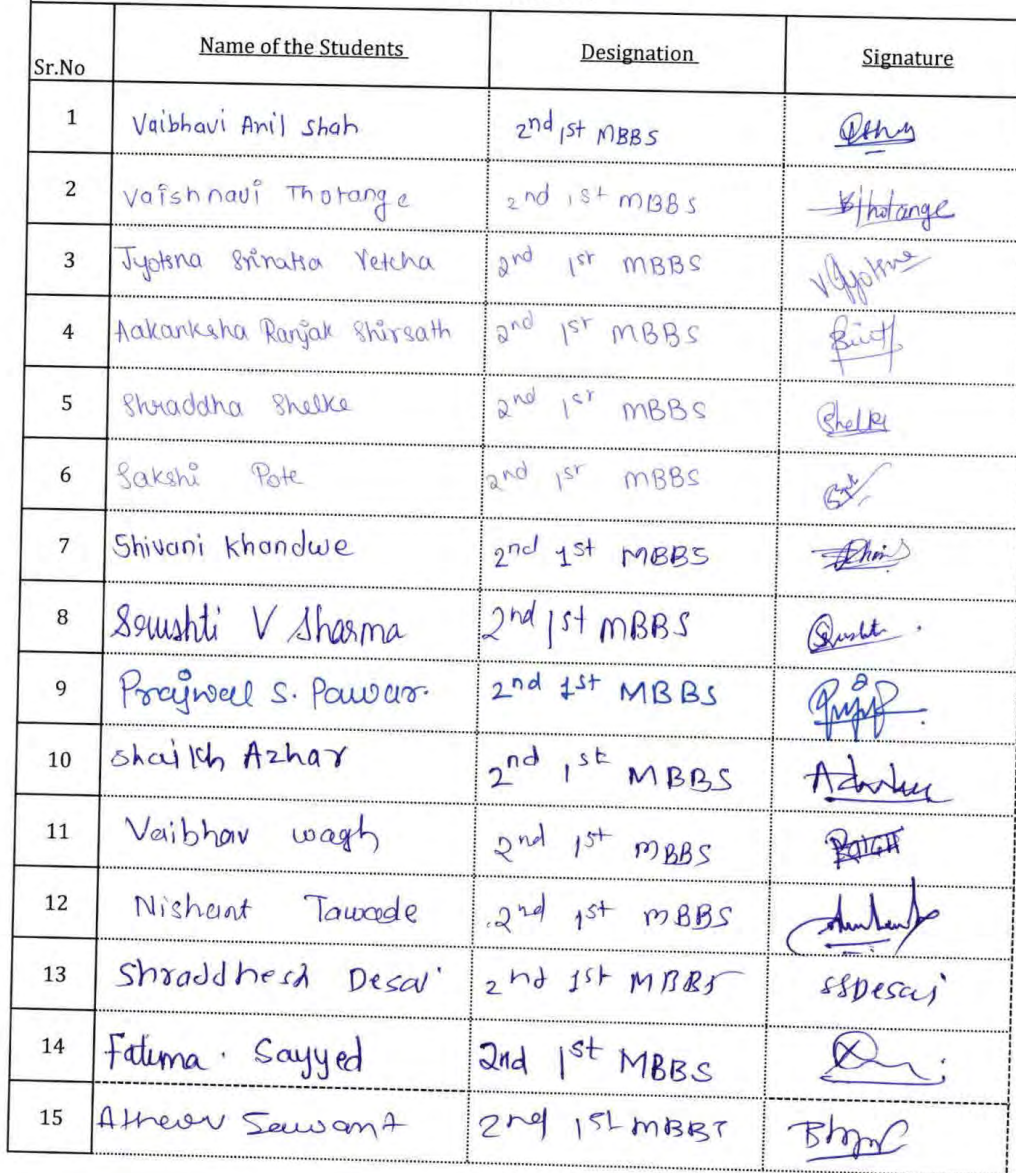 Sr.No Name of the Students Designation Signature
1 Vaibhavi Anil Shah 2nd 1st MBBS
2 Vaishnavi Thorange 2nd 1st MBBS Bthotange
3 Jyotsna Srinatsa Vetcha 2nd 1st MBBS VJyotsna
4 Aakanksha Ranjak Shirsath 2nd 1st MBBS
5 Shraddha Shelke 2nd 1st MBBS Shelke
6 Sakshi Pote 2nd 1st MBBS
7 Shivani Khandwe 2nd 1st MBBS
8 Srushti V Sharma 2nd 1st MBBS Srushti
9 Prajwal S. Pawar. 2nd 1st MBBS
10 Shaikh Azhar 2nd 1st MBBS
11 Vaibhav wagh 2nd 1st MBBS
12 Nishant Tawade 2nd 1st MBBS
13 Shraddhesh Desai 2nd 1st MBBS SSDesai
14 Fatima. Sayyed 2nd 1st MBBS
15 Sawant 2nd 1st MBBS